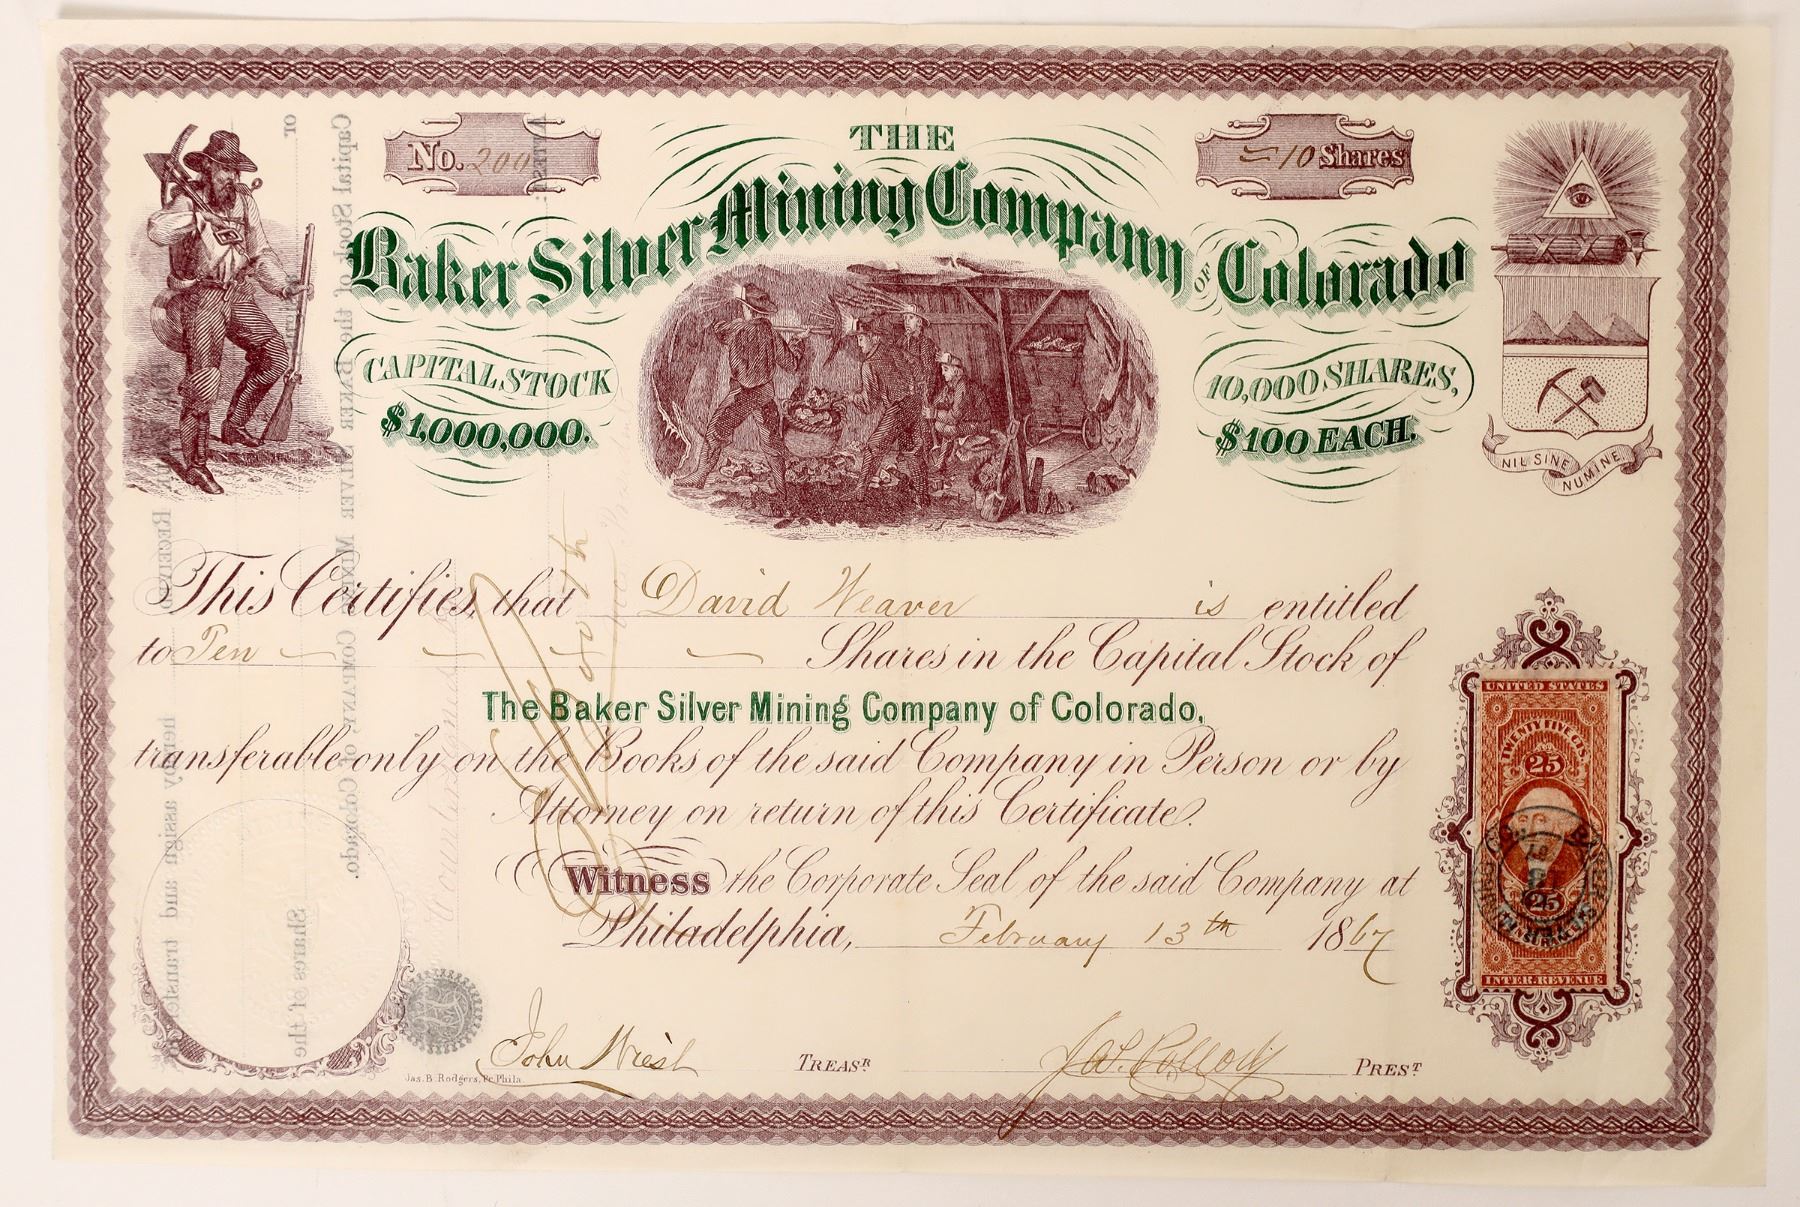 No. 200
10 Shares
THE
Baker Silver Mining Company OF Colorado
CAPITAL STOCK
$1,000,000.
10,000 SHARES,
$100 EACH.
NIL SINE NUMINE
This Certifies, that David Weaver is entitled
to Ten Shares in the Capital Stock of
The Baker Silver Mining Company of Colorado,
transferable only on the Books of the said Company in Person or by
Attorney on return of this Certificate.
Witness the Corporate Seal of the said Company at
Philadelphia, February 13th 1867
John West TREASR
PREST
Jas. B. Rodgers, Pr. Phila.
UNITED STATES
TWENTY FIVE CTS.
25
25
INTER. REVENUE
ATTEST:
or
Capital Stock of the BAKER SILVER MINING COMPANY of Colorado.
RECEIVED
hereby assign and transfer
Shares of the